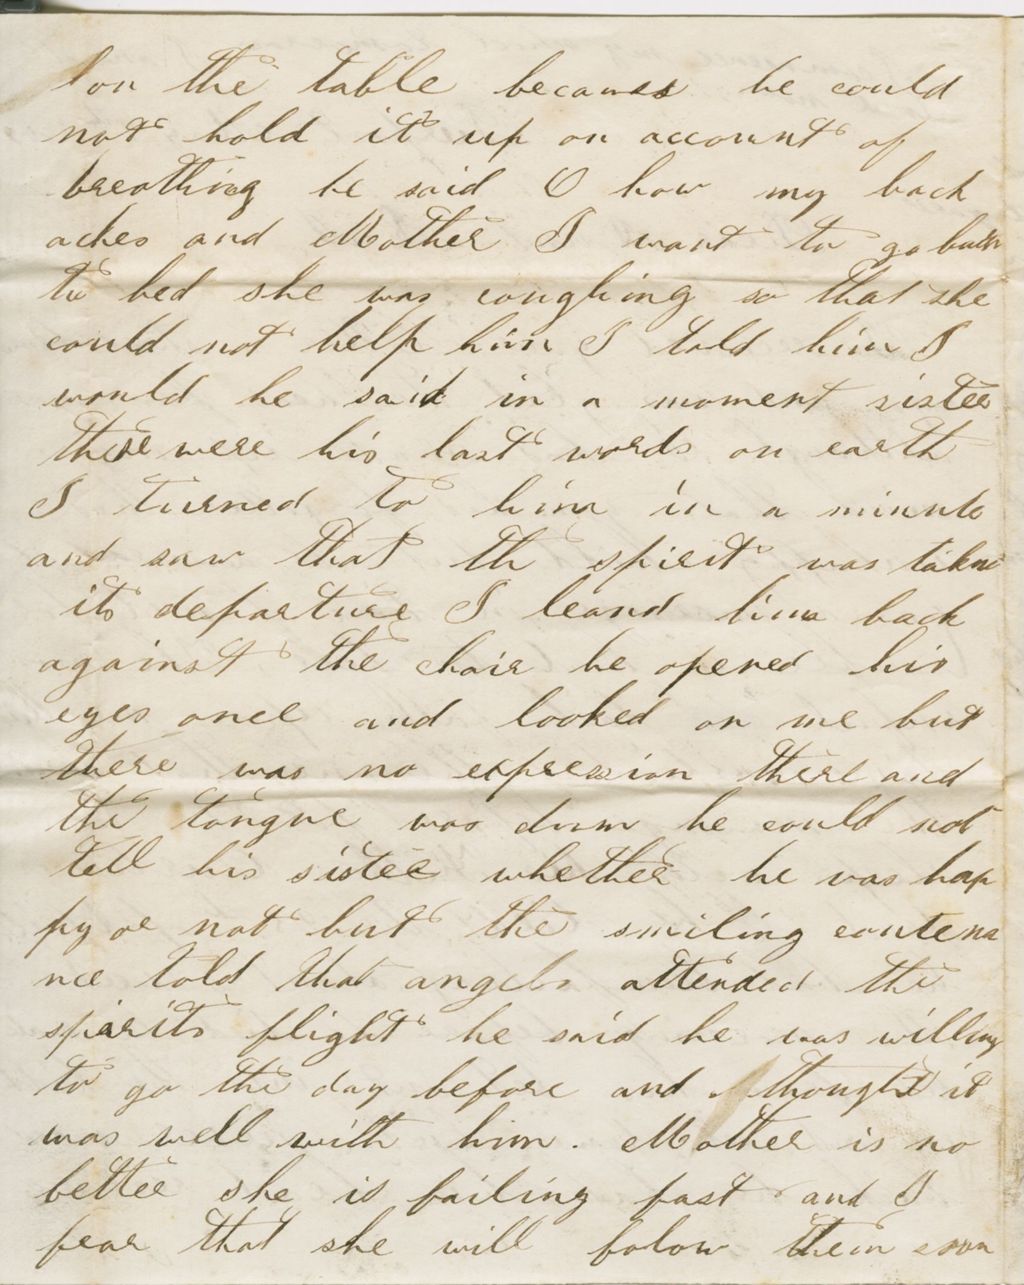 on the table because he could
not hold it up on account of
breathing he said O how my back
aches and Mother I want to go back
to bed she was coughing so that she
could not help him I told him I
would he said in a moment sister
these were his last words on earth
I turned to him in a minute
and saw that th spirit was takn
its departure I leand him back
against the chair he opened his
eyes once and looked on me but
there was no expression there and
the tongue was dum he could not
tell his sister whether he was hap
py or not but the smiling contena
nce told that angels attended the
spirits flight he said he was willing
to go the day before and thought it
was well with him. Mother is no
better she is failing fast and I
fear that she will folow them soon